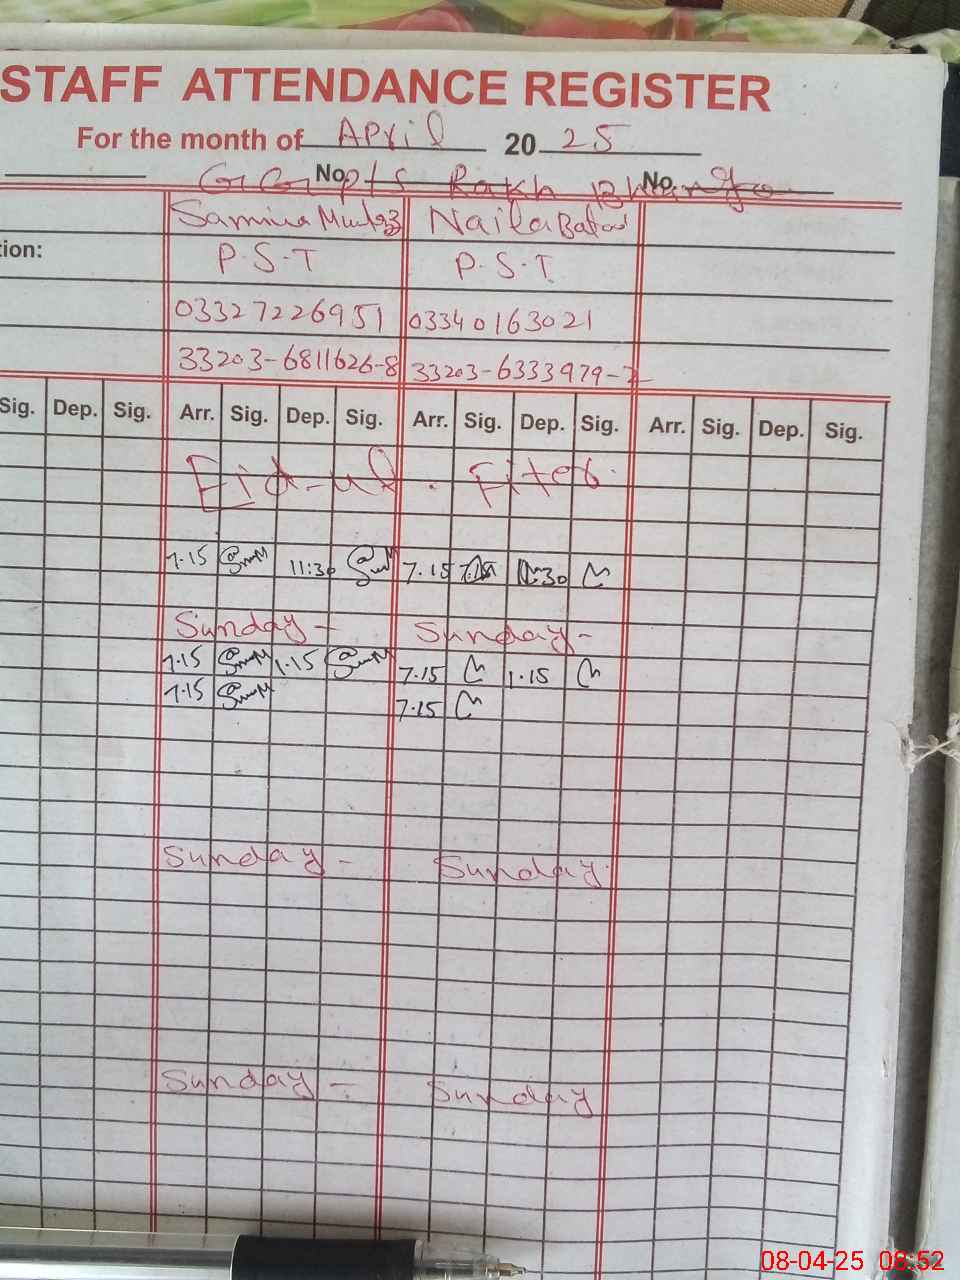 STAFF ATTENDANCE REGISTER
For the month of April 20 25
No. No.
Samina Mumtaz Naila Batool
tion: P.S.T P.S.T
03327226951 03340163021
33203-6811626-8 33203-6333979-2
Sig. Dep. Sig. Arr. Sig. Dep. Sig. Arr. Sig. Dep. Sig. Arr. Sig. Dep. Sig.
Eid-ul. Fiter.
7.15 11:30 7.15 11.30
Sunday - Sunday -
7.15 1.15 7.15 1.15
7.15 7.15
Sunday - Sunday.
Sunday - Sunday
08-04-25 08:52